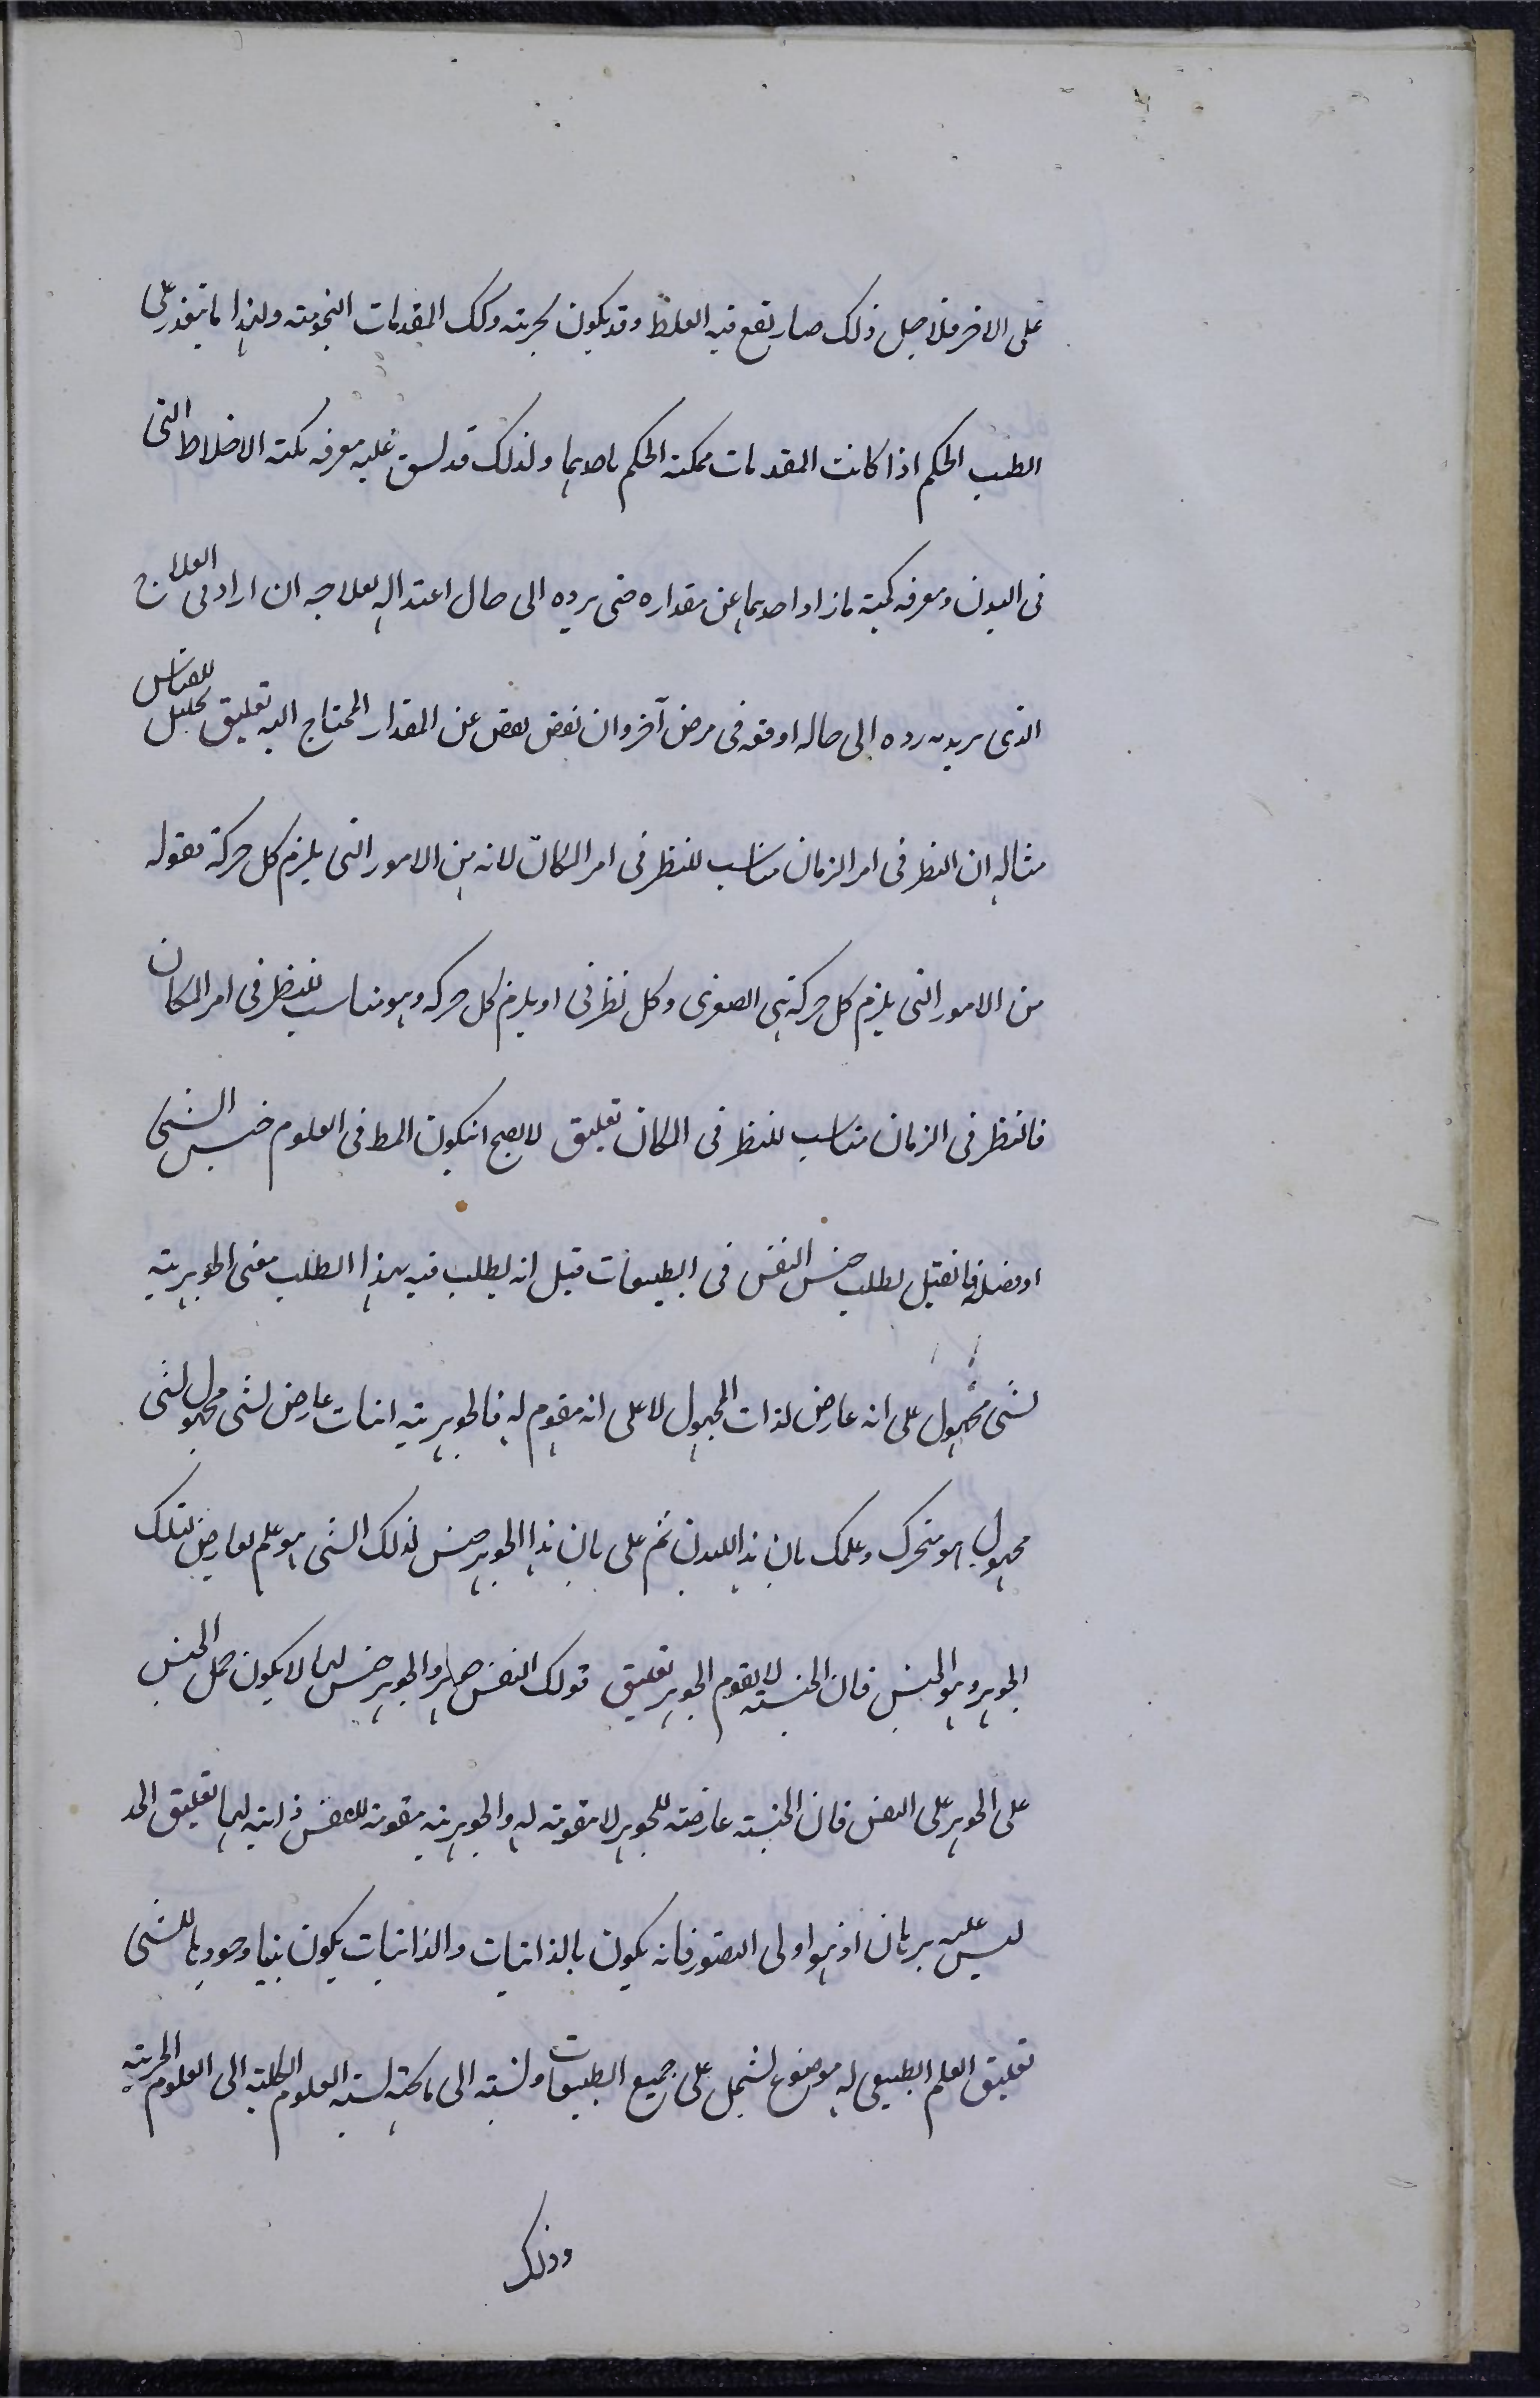 على الاخر فلاجل ذلك صار يقع فيه الغلط وقد يكون تجربته وكك المقدمات النجومية ولهذا ما يتعذر على
الطب الحكم اذا كانت المقدمات ممكنة الحكم باحديهما ولذلك قد عليه معرفه كمية الاخلاط التى
فى البدن ومعرفه كمية ما زاد احديهما عن مقداره حتى يرده الى حال اعتداله بعلاجه ان اراد فى العلاج
الذى يريد به رده الى حاله اوقعه فى مرض آخر وان نقص نقص عن المقدار المحتاج اليه تعليق تحليل للقياس
مثاله ان النظر فى امر الزمان مناسب للنظر فى امر المكان لانه من الامور التى يلزم كل حركة فقوله
من الامور التى يلزم كل حركة هى الصغرى وكل نظر فى او يلزم كل حركه وهو مناسب للنظر فى امر المكان
فالنظر فى الزمان مناسب للنظر فى المكان تعليق لا يصح انيكون المط فى العلوم جنس الشئ
او فصله فانقيل يطلب جنس النفس فى الطبيعات قيل انه يطلب فيه بهذا الطلب معنى الجوهرية
لشئ مجهول على انه عارض لذات المجهول لا على انه مقوم له فالجوهرية اثبات عارض لشئ مجهول لشئ
مجهول هو متحرك وعلمك بان هذا للبدن ثم على بان هذا الجوهر جنس لذلك الشئ هو علم بعارض لتلك
الجوهر وهو الجنس فان الجنسية لا يقوم الجوهر تعليق قولك النفس جوهر والجوهر جنس لها لا يكون حمل الجنس
على الجوهر على النفس فان الجنسية عارضة للجوهر لا مقومة له والجوهرية مقومة للنفس ذاتية لها تعليق الحد
ليس عليه برهان اذ هو اولى التصور فانه يكون بالذاتيات والذاتيات يكون بينا وجودها للشئ
تعليق العلم الطبيعى له موضوع يشتمل على جميع الطبيعات ونسبته الى ما تحته نسبة العلوم الكلية الى العلوم الجزئية
وذلك